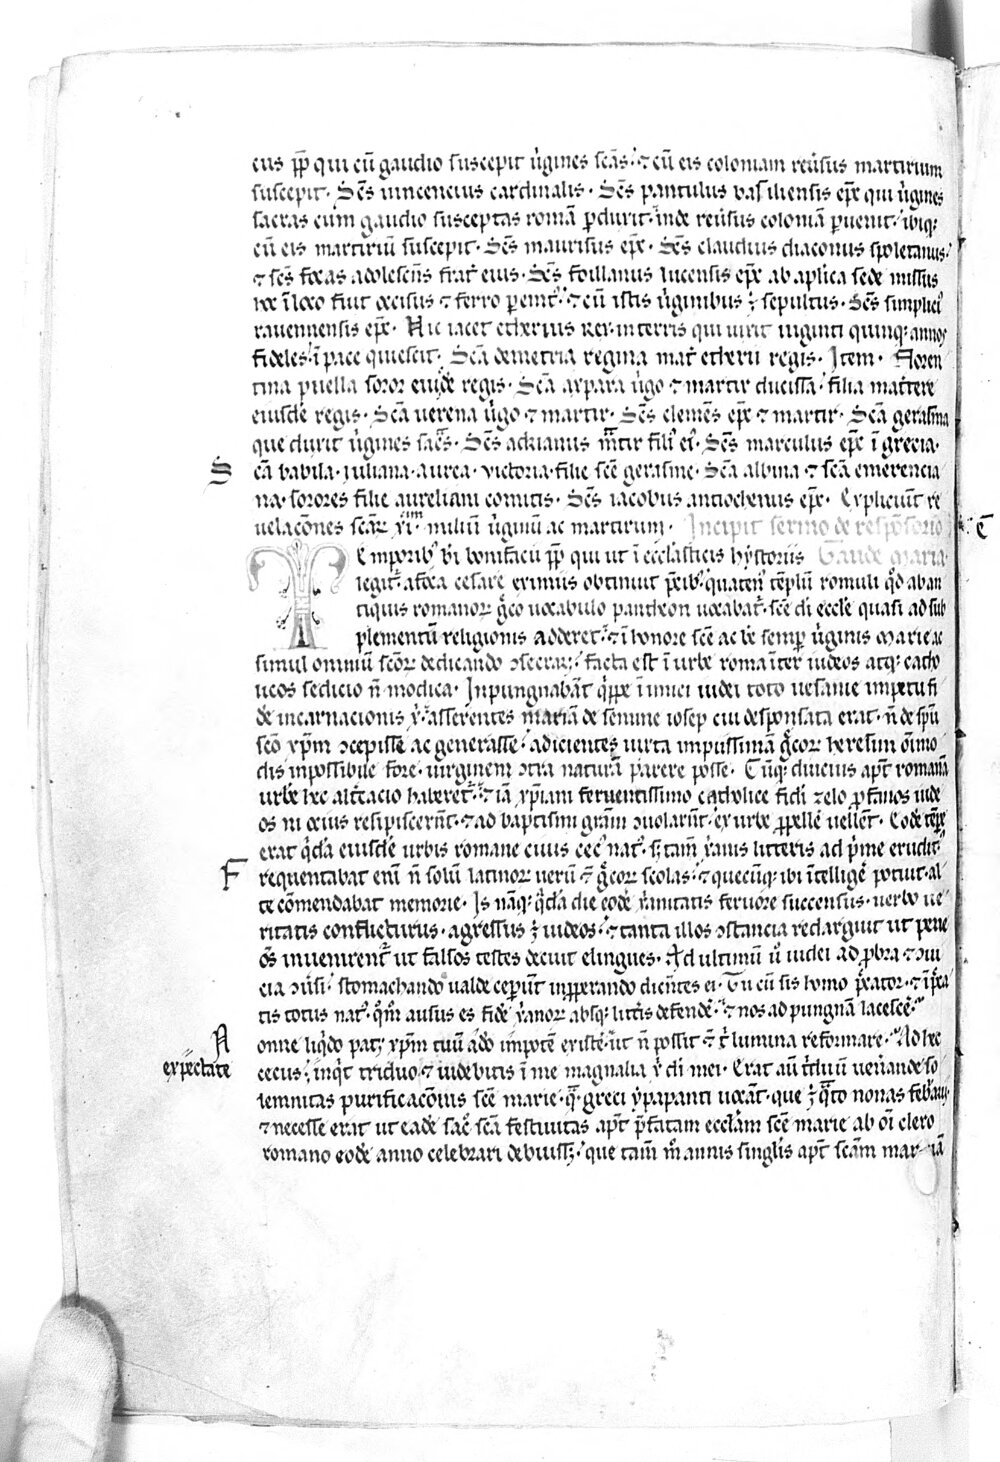 cus pp̄ qui cū gaudio suscepit ùgines sc̄as · ⁊ cū eis coloniam reùsus martirium
suscepit · Sc̄s vincencius cardinalis · Sc̄s pantulus basiliensis ep̄c qui ùgines
sacras cum gaudio susceptas romā ꝑduxit · inde reùsus coloniā ꝑuenit · ibiq;
cū eis martiriū suscepit · Sc̄s maurisus ep̄c · Sc̄s claudius diaconus spoletanus ·
⁊ sc̄s focas adolescēs frat̄ eius · Sc̄s foillanus lucensis ep̄c ab aplīca sede missus
hoc ī loco fuit occisus ⁊ ferro ꝑempt᷒ · ⁊ cū istis ùginibus ē sepultus · Sc̄s simplici᷒
rauennensis ep̄c · Hic iacet etherius rex in terris qui uixit uiginti quinq; annos
fideles · ī pace quiescit · Sc̄a demetria regina mat̄ etherii regis · Item · Floren
tina puella soror eiusdē regis · Sc̄a axpara ùgo ⁊ martir ducissa · filia matertere
eiusdē regis · Sc̄a uerena ùgo ⁊ martir · Sc̄s clemēs ep̄c ⁊ martir · Sc̄a gerasma
que duxit ùgines sac̄s · Sc̄s adrianus martir fili᷒ ei᷒ · Sc̄s marculus ep̄c ī grecia ·
S c̄a babila · iuliana · aurea · victoria · filie sc̄e gerasine · Sc̄a albina ⁊ sc̄a emerencia
na · sorores filie aureliani comitis · Sc̄s iacobus antiochenus ep̄c · Expliciūt re
uelac̄ones sc̄aꝝ xi · miliū ùginū ac martirum · Incipit sermo de respōsorio
Temporib᷒ bī bonifacii pp̄ qui ut ī eccl̄asticis hystoriis Gaude maria
legit̄ a foca cesare eximiis obtinuit p̄cib᷒ · quaten᷒ tēplū romuli qd̄ ab an
tiquis romanoꝝ greco uocabulo pantheon uocabat̄ · sc̄e dī eccl̄e quasi ad sup
plementū religionis adderet · ⁊ ī honore sc̄e ac bē semꝑ ùginis Marie ac
simul omniū sc̄oꝝ dedicando ɔsecrar; · facta est ī urbe roma īter iudeos atq; catho
licos sedicio n̄ modica · Inpungnabāt q̄ppe īimici iudei toto uesanie impetu fi
dē incarnacionis xp̄i · asserentes mariā de semine iosep cui desponsata erat · n̄ de spū
sc̄o xp̄m ɔcepisse ac generasse · adicientes iuxta impiissimā grecoꝝ heresim oīmo
dis inpossibile fore · uirginem ɔtra naturā parere posse · Cūq; diucius apt̄ romanā
urbē hec alt̄cacio haberet̄ · ⁊ iā xp̄iani feruentissimo catholice fidei zelo ꝓfanos iude
os ni ocius resipiscerent · ⁊ ad baptismi grām ɔuolarent · ex urbe ꝓpellere uellent · Eodē tēpore
erat qdā eiusdē urbis romane ciuis cec᷒ nat᷒ · s; tam̄ xp̄ianis litteris ad prime erudit᷒
F requentabat enī n̄ solū latinoꝝ uerū ⁊ grecoꝝ scolas · ⁊ quecūq; ibi ītelligē potuit · al
te cōmendabat memorie · Is nāq; qdā die eodē xp̄ianitatis feruore succensus · uerbo ue
ritatis conflicturus · agressus ē iudeos · ⁊ tanta illos ɔstancia redarguit ut pene
om̄s inuenirent̄ ut falsos testes decuit elingues · Ad ultimū ù iudei ad ꝓbra ⁊ ɔui
cia ɔùsi · stomachando ualde ceperūt inꝓperando dicētes ei · Tu cū sis homo peccator · ⁊ ī peca
tis totus nat᷒ · qm̄ ausus es fidē xp̄ianoꝝ absq; litt̄is defendē · ⁊ nos ad pungnā lacescē
N onne liqdo pat; xp̄m tuū adō impotē existē · ut n̄ possit ⁊ lumina reformare · Ad hec
expectate cecus · inqt triduo · ⁊ uidebitis ī me magnalia xp̄i dī mei · Erat aut̄ triduū ueniende so
lemnitas purificac̄ionis sc̄e marie · q̄ greci ypapanti uocāt · que ē q̄to nonas februarii ·
⁊ necesse erat ut eadē sac̄ sc̄a festiuitas apt̄ p̄fatam eccl̄am sc̄e marie ab oī clero
romano eodē anno celebrari debuiss; · que tam̄ m̊ annis singlis apt̄ sc̄am mariā